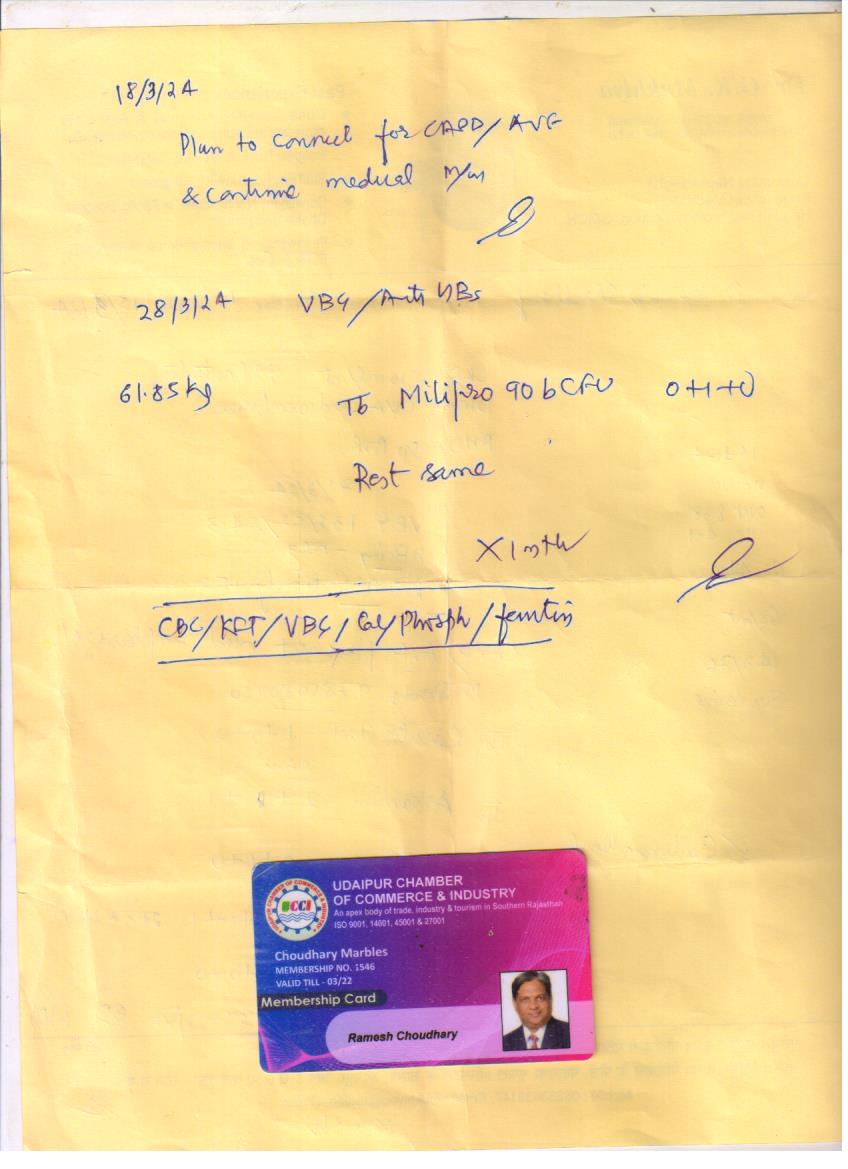 18/3/24
Plan to connect for CAPD/AVF
& continue medical m/m
28/3/24 VBG/Anti HBs
61.85 kg Tb Milipro 90 b CFU 0+1+0
Rest same
X 1 mth
CBC/KFT/VBG/Cal/Phosph/ferritin
UDAIPUR CHAMBER
OF COMMERCE & INDUSTRY
An apex body of trade, industry & tourism in Southern Rajasthan
ISO 9001, 14001, 45001 & 27001
UDAIPUR CHAMBER OF COMMERCE & INDUSTRY
UCCI
Choudhary Marbles
MEMBERSHIP NO. 1546
VALID TILL - 03/22
Membership Card
Ramesh Choudhary